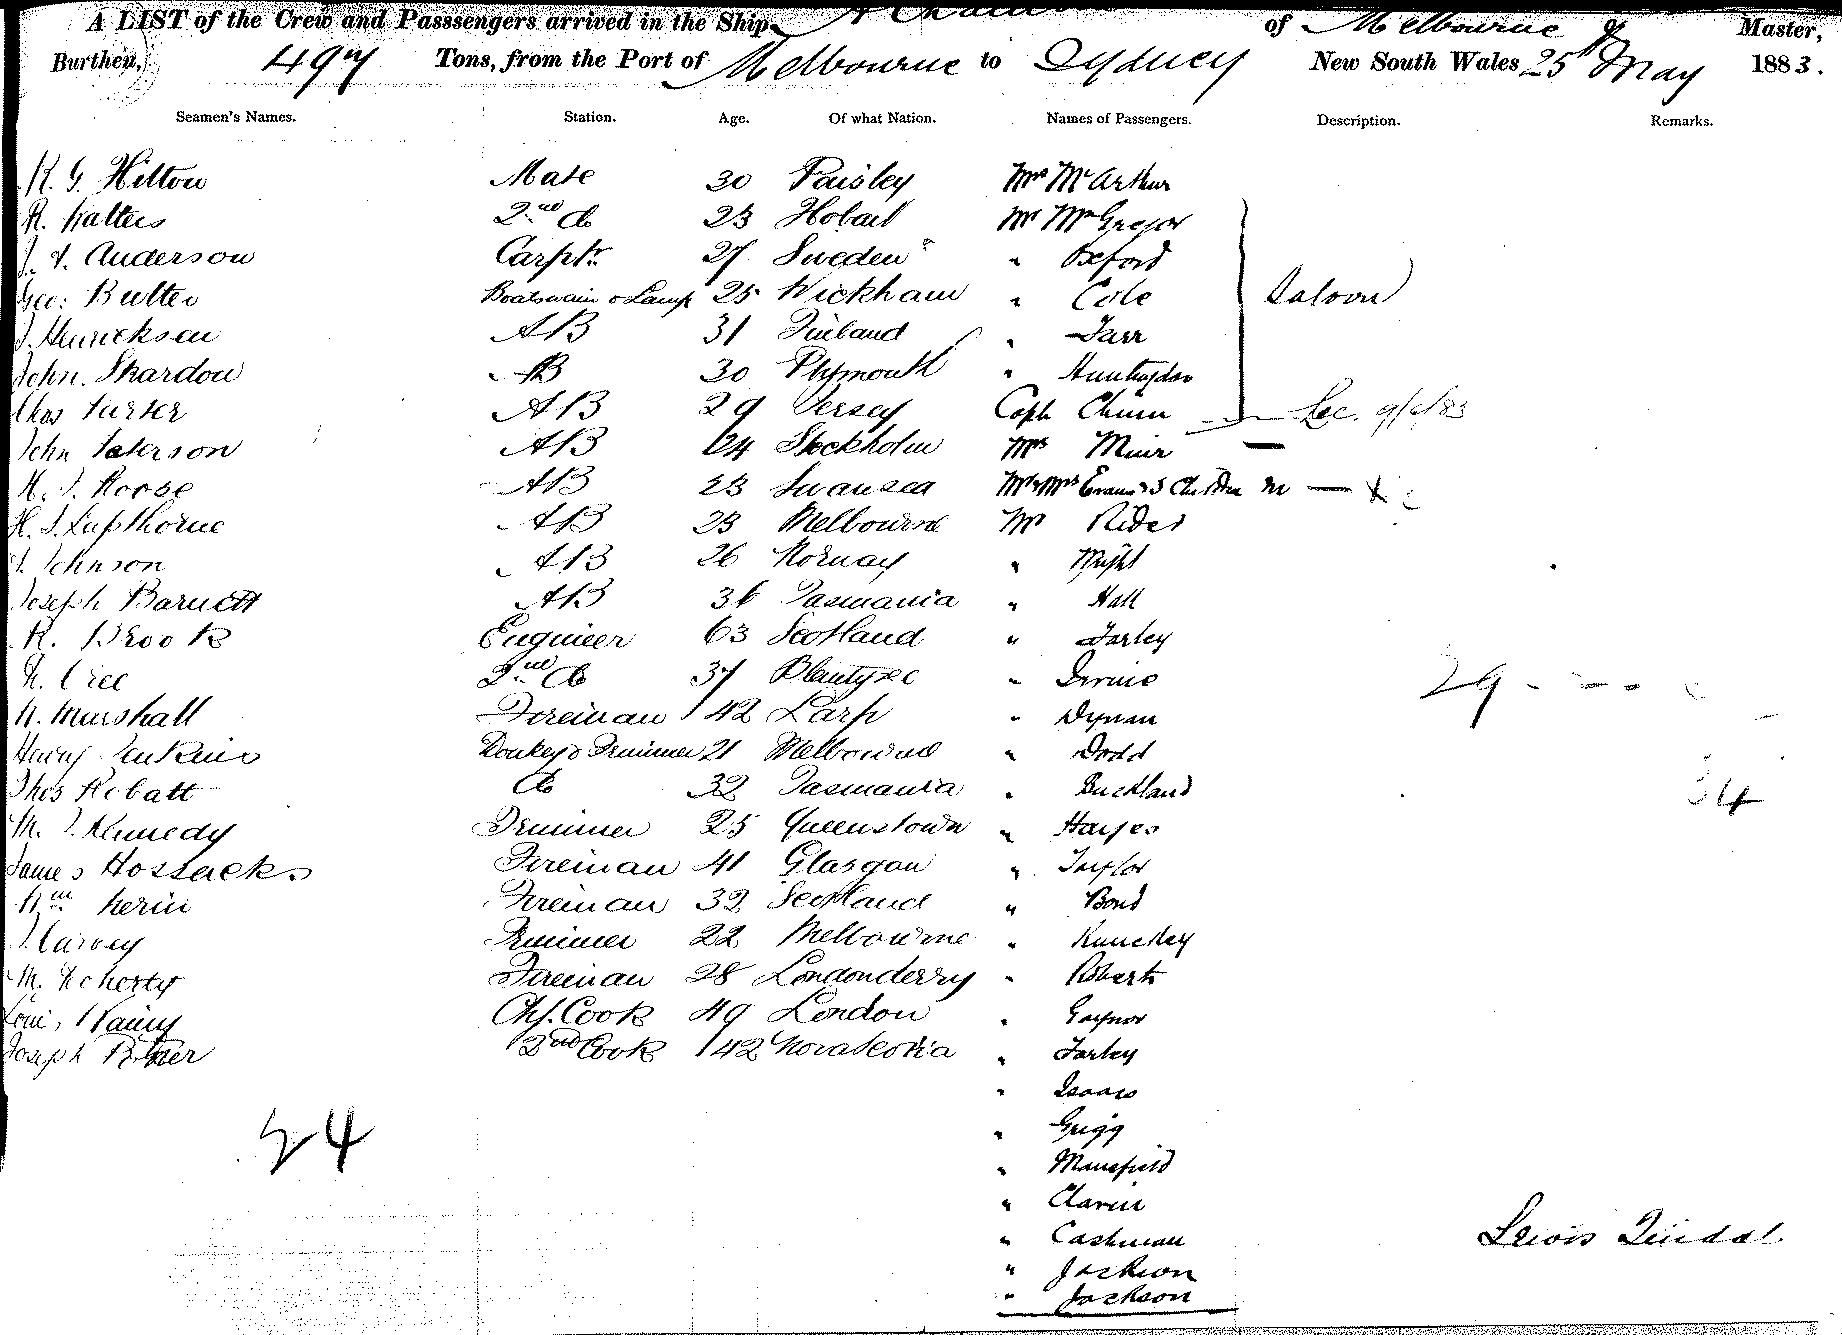 A LIST of the Crew and Passsengers arrived in the Ship of Melbourne Master,
Burthen, 497 Tons, from the Port of Melbourne to Sydney New South Wales 25th May 1883.
Seamen's Names. Station. Age. Of what Nation. Names of Passengers. Description. Remarks.
R. G. Hilton Mate 30 Paisley Mrs McArthur
R. Walters 2nd Do 23 Hobart Mr McGregor
J. A. Anderson Carptr 27 Sweden " Oxford
Geo: Butter Boatswain & Lamp 25 Wickham " Cole Saloon
J. Henricksen AB 31 Finland " Farr
John Skardon AB 30 Plymouth " Huntingdon
Chas Turner AB 29 Jersey Capt Chinn
John Paterson AB 24 Stockholm Mrs Muir
AB 23 Swansea Mr & Mrs Evans & 3 Children
H. J. Lapthorne AB 23 Melbourne Mr Rider
J. Johnson AB 26 Norway " Wright
Joseph Barnett AB 36 Tasmania " Hall
R. Brook Engineer 63 Scotland " Farley
2nd Do 37 Blantyre " Irvine 29
N. Marshall Fireman 42 " Dynan
Harry Jenkins Donkey & Trimmer 21 Melbourne " Dodd
Thos Robatt Do 32 Tasmania " Buckland 34
M. J. Kennedy Trimmer 25 Queenstown " Hayes
James Hossack Fireman 41 Glasgow " Taylor
Wm Fireman 32 Scotland " Bond
J. Carvey Trimmer 22 Melbourne "
M. Doherty Fireman 28 Londonderry " Roberts
Chf. Cook 49 London " Gaynor
Joseph 2nd Cook 42 Nova Scotia " Farley
" Isaacs
24 " Grigg
" Mansfield
" Clarin
" Cashman Lewis Tindal
" Jackson
" Jackson